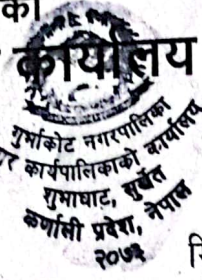 का
कार्यालय
गुर्भाकोट नगरपालिका
नगर कार्यपालिकाको कार्यालय
गुमाघाट, सुर्खेत
कर्णाली प्रदेश, नेपाल
२०७३